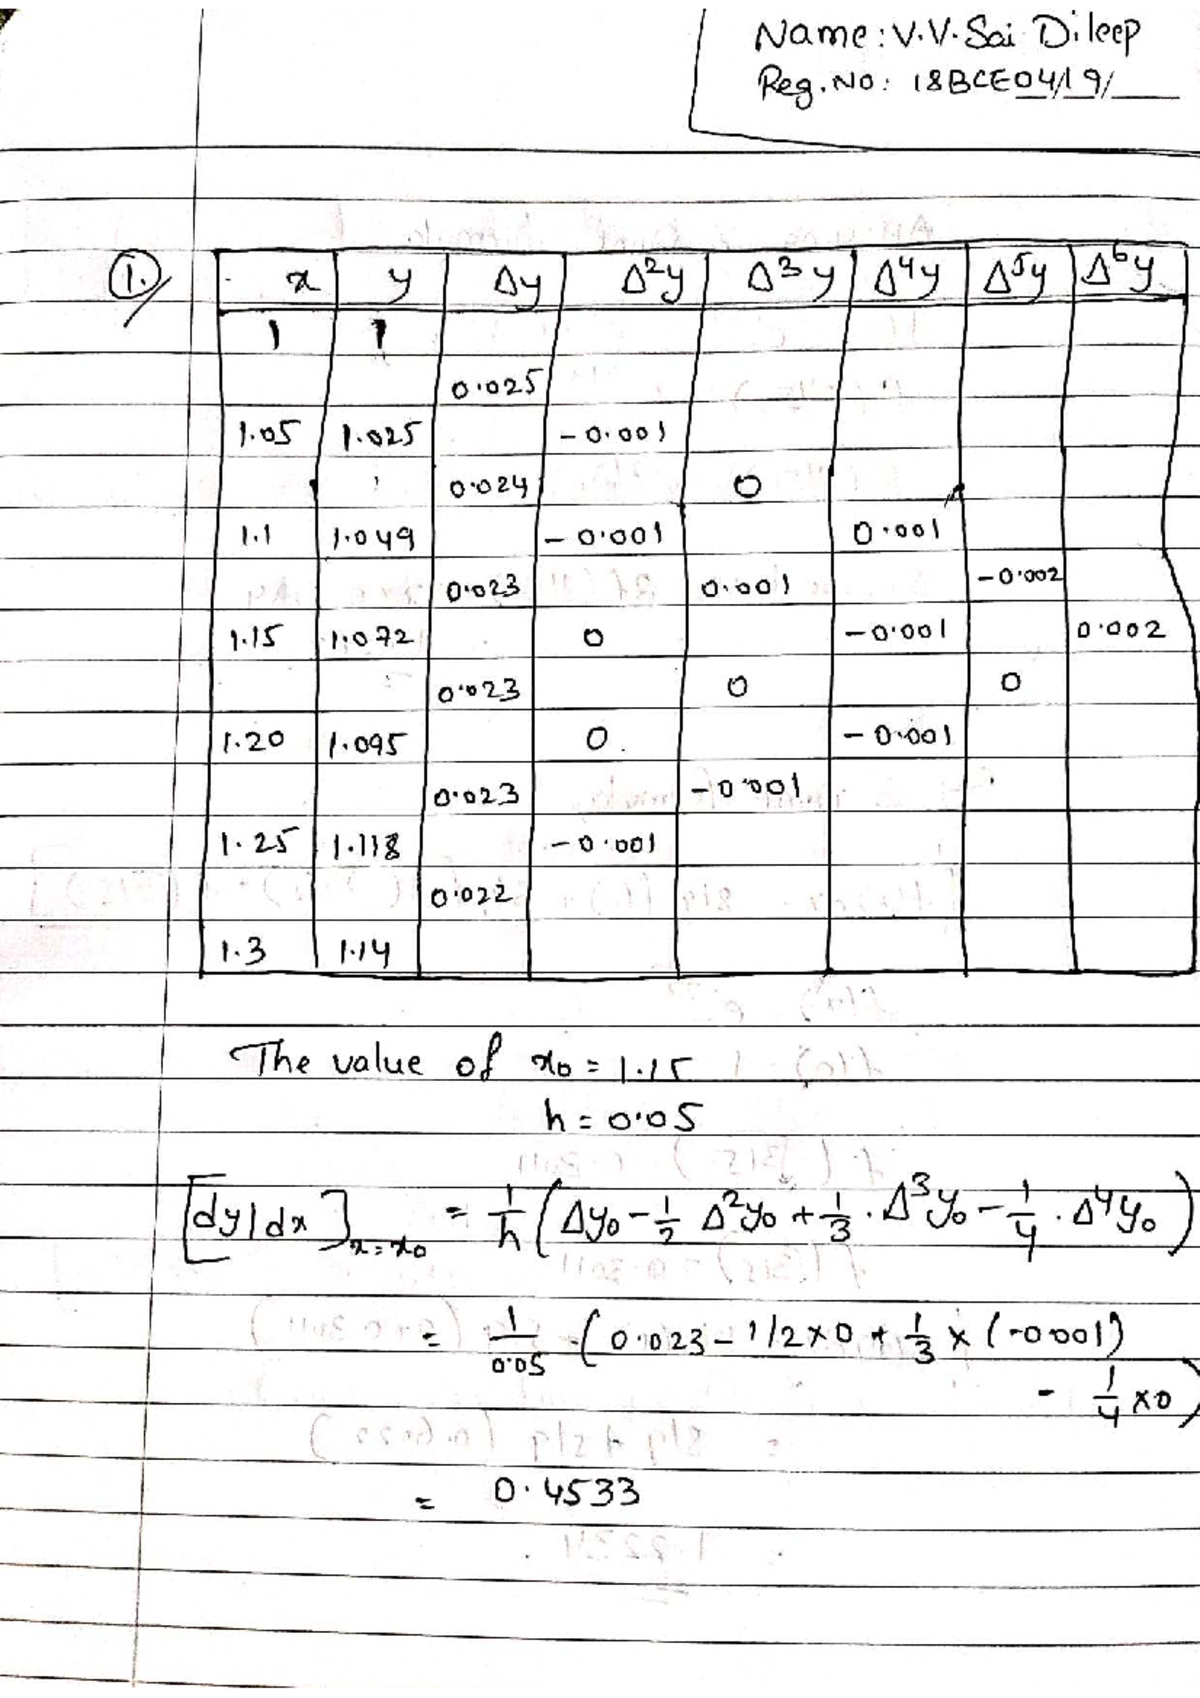 Name: V.V. Sai Dileep
Reg. No: 18BCE0419/
1.
x y Δy Δ²y Δ³y Δ⁴y Δ⁵y Δ⁶y
1 1
0.025
1.05 1.025 -0.001
0.024 0
1.1 1.049 -0.001 0.001
0.023 0.001 -0.002
1.15 1.072 0 -0.001 0.002
0.023 0 0
1.20 1.095 0 -0.001
0.023 -0.001
1.25 1.118 -0.001
0.022
1.3 1.14
The value of x₀ = 1.15
h = 0.05
[dy/dx]ₓ₌ₓ₀ = 1/h (Δy₀ - 1/2 Δ²y₀ + 1/3 . Δ³y₀ - 1/4 . Δ⁴y₀)
= 1/0.05 (0.023 - 1/2 × 0 + 1/3 × (-0.001)
- 1/4 × 0)
= 0.4533